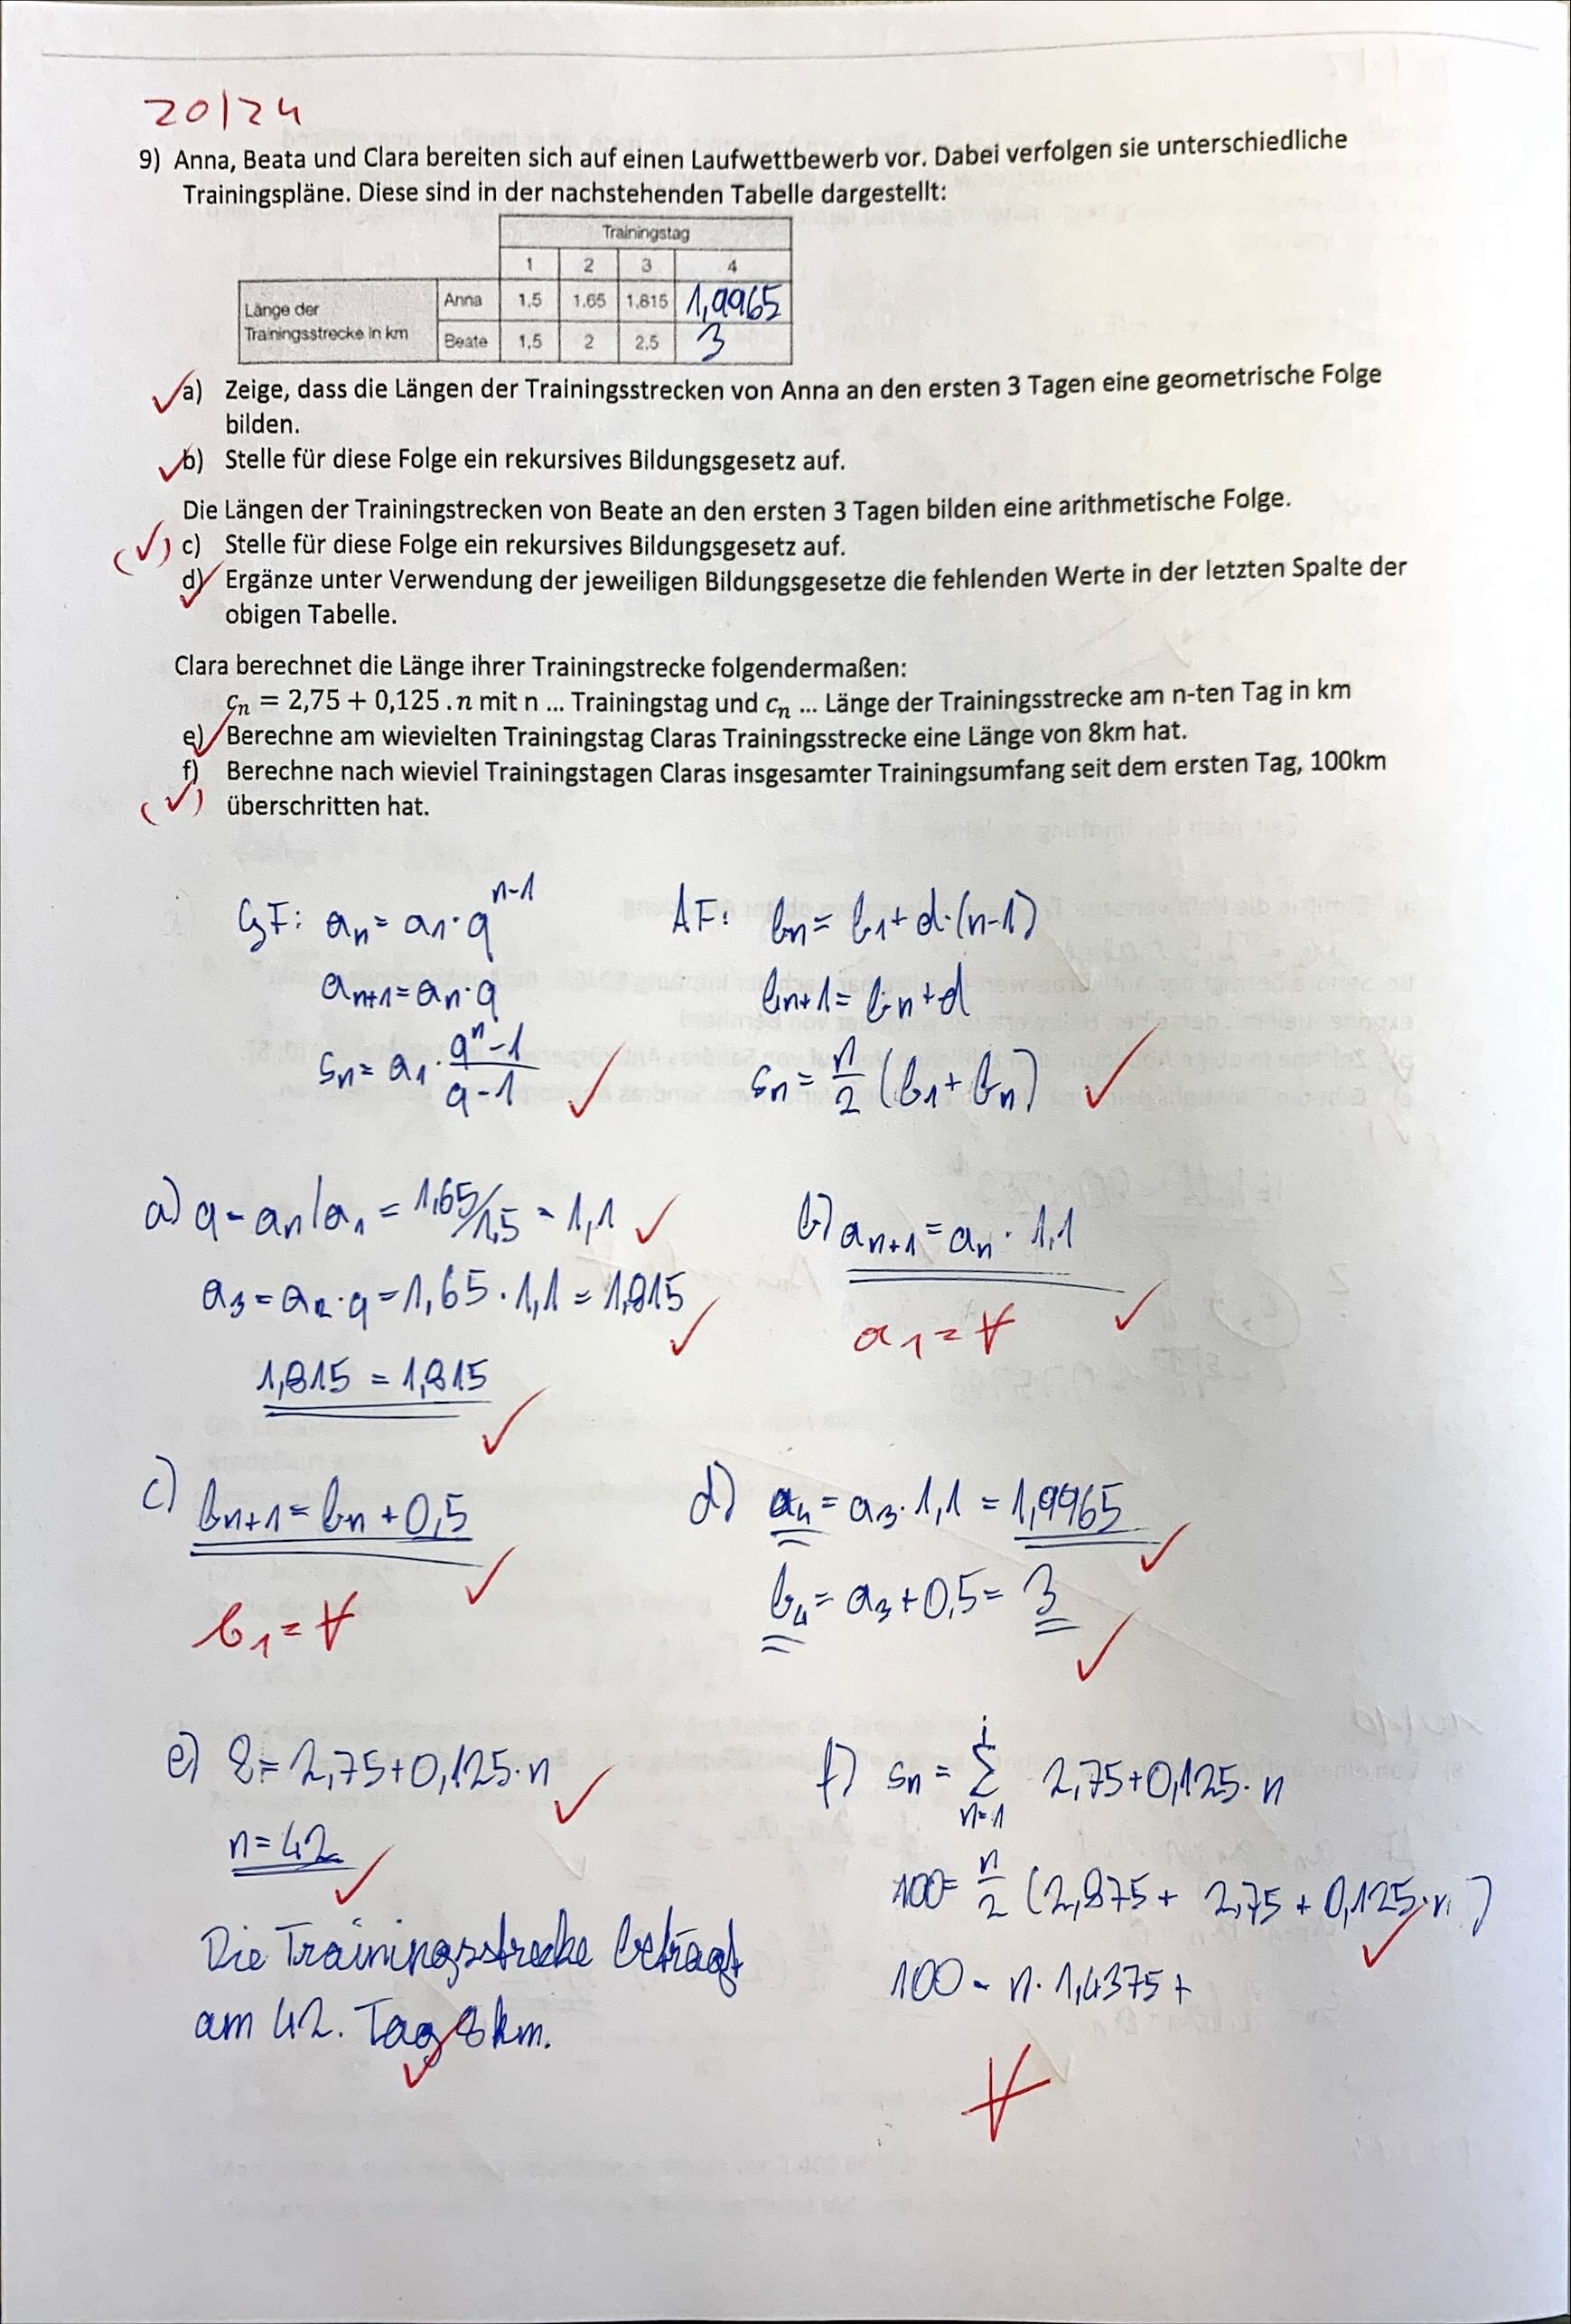 20/24
9) Anna, Beata und Clara bereiten sich auf einen Laufwettbewerb vor. Dabei verfolgen sie unterschiedliche
Trainingspläne. Diese sind in der nachstehenden Tabelle dargestellt:
Trainingstag
1 2 3 4
Länge der Trainingsstrecke in km
Anna 1,5 1,65 1,815 1,9965
Beate 1,5 2 2,5 3
a) Zeige, dass die Längen der Trainingsstrecken von Anna an den ersten 3 Tagen eine geometrische Folge
bilden.
b) Stelle für diese Folge ein rekursives Bildungsgesetz auf.
Die Längen der Trainingstrecken von Beate an den ersten 3 Tagen bilden eine arithmetische Folge.
(✓) c) Stelle für diese Folge ein rekursives Bildungsgesetz auf.
d) Ergänze unter Verwendung der jeweiligen Bildungsgesetze die fehlenden Werte in der letzten Spalte der
obigen Tabelle.
Clara berechnet die Länge ihrer Trainingstrecke folgendermaßen:
cₙ = 2,75 + 0,125 . n mit n ... Trainingstag und cₙ ... Länge der Trainingsstrecke am n-ten Tag in km
e) Berechne am wievielten Trainingstag Claras Trainingsstrecke eine Länge von 8km hat.
f) Berechne nach wieviel Trainingstagen Claras insgesamter Trainingsumfang seit dem ersten Tag, 100km
(✓) überschritten hat.
GF: aₙ = a₁ · q^(n-1)
AF: bₙ = b₁ + d · (n-1)
aₙ₊₁ = aₙ · q
bₙ₊₁ = bₙ + d
sₙ = a₁ · (qⁿ-1)/(q-1) ✓
sₙ = n/2 (b₁ + bₙ) ✓
a) q = aₙ/a₁ = 1,65/1,5 = 1,1 ✓
b) aₙ₊₁ = aₙ · 1,1 ✓
a₃ = a₂ · q = 1,65 · 1,1 = 1,815 ✓
a₁ = ∀
1,815 = 1,815 ✓
c) bₙ₊₁ = bₙ + 0,5 ✓
d) a₄ = a₃ · 1,1 = 1,9965 ✓
b₁ = ∀
b₄ = a₃ + 0,5 = 3 ✓
e) 8 = 2,75 + 0,125 · n ✓
f) sₙ = Σ i n=1 2,75 + 0,125 · n
n = 42 ✓
100 = n/2 (2,875 + 2,75 + 0,125 · n) ✓
Die Trainingsstrecke beträgt
100 = n · 1,4375 +
am 42. Tag 8km. ✓
∀